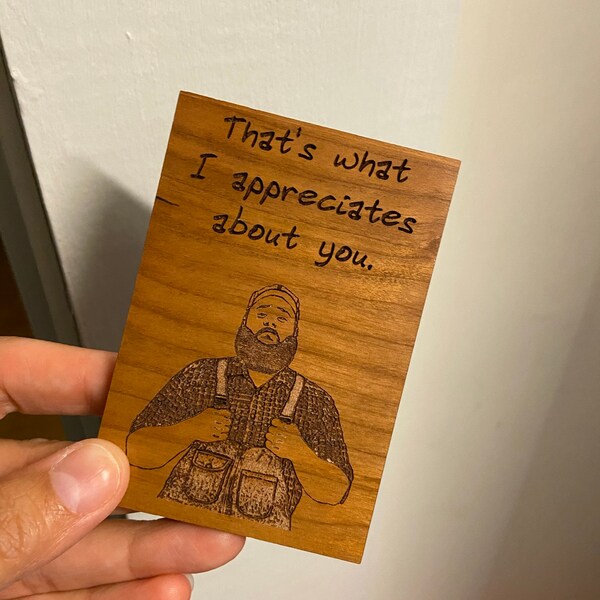 That's what
I appreciates
about you.